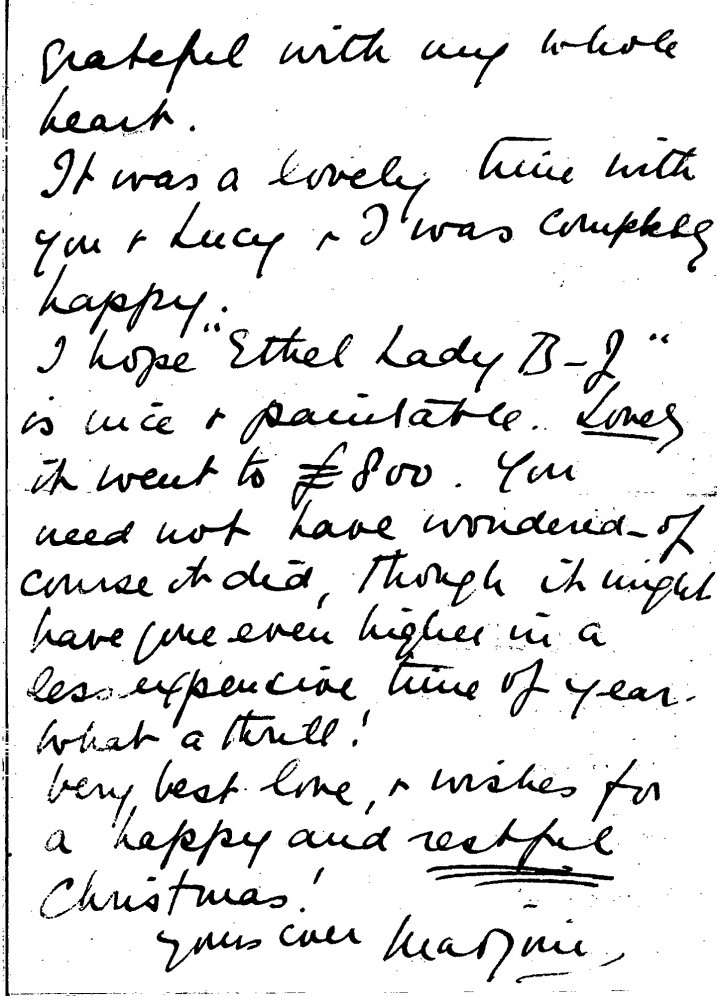 grateful with my whole
heart.
It was a lovely time with
you + Lucy + I was completely
happy.
I hope "Ethel Lady B-J"
is nice + paintable. Lovely
it went to £800. You
need not have wondered - of
course it did, though it might
have gone even higher in a
less expensive time of year.
What a thrill!
Very best love, + wishes for
a happy and restful
Christmas!
yours ever Marjorie